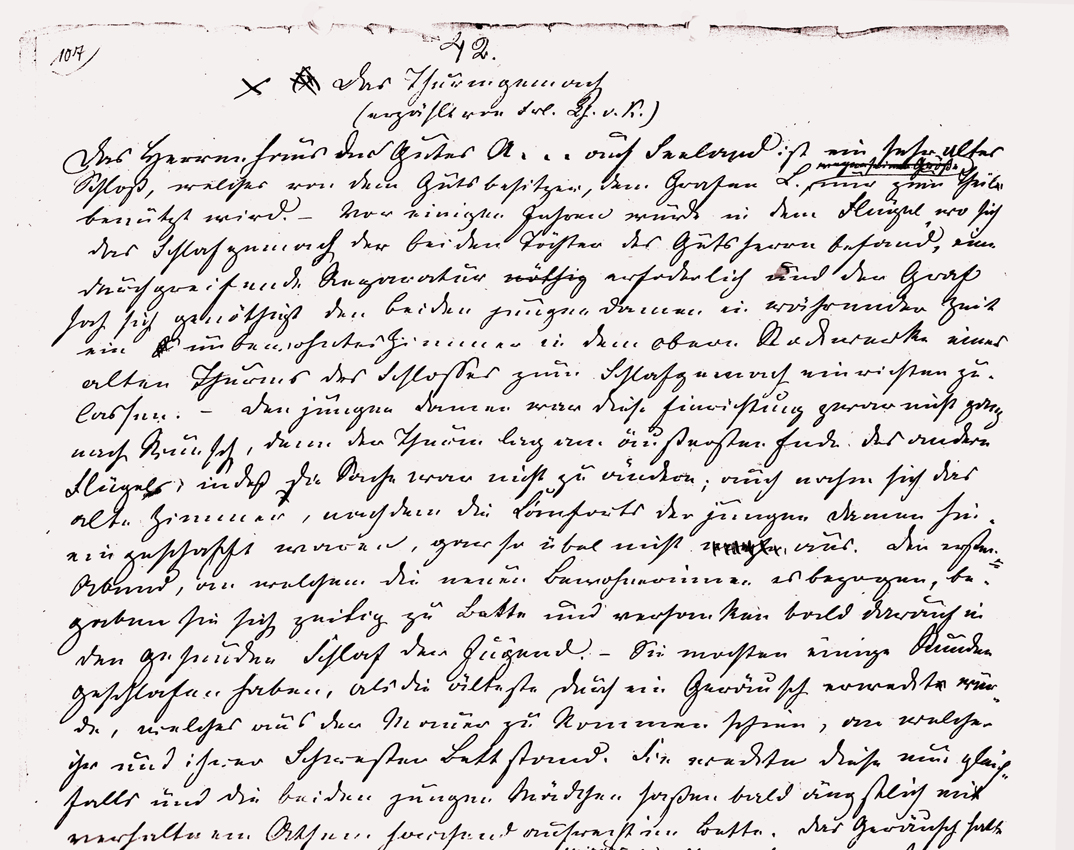 107
42.
Das Thurmgemach
(erzählt von Frl. v. K.)
Das Herrenhaus des Gutes A... auf Seeland ist ein sehr altes
Schloß, welches von dem Gutsbesitzer, dem Grafen L. nur zum Theile
benützt wird. – Vor einigen Jahren wurde in dem Flügel, wo sich
das Schlafgemach der beiden Töchter des Gutsherrn befand, eine
durchgreifende Reparatur nöthig erforderlich und der Graf
sah sich genöthigt den beiden jungen Damen in währender Zeit
ein unbewohntes Zimmer in dem obern Stockwerke eines
alten Thurms des Schlosses zum Schlafgemach einrichten zu
lassen. – Den jungen Damen war diese Einrichtung zwar nicht ganz
nach Wunsch, denn der Thurm lag am äußersten Ende des andern
Flügels, indeß die Sache war nicht zu ändern; auch nahm sich das
alte Zimmer, nachdem die Comforts der jungen Damen hin-
eingeschafft waren, gar so übel nicht aus. Den ersten
Abend, an welchem die neuen Bewohnerinnen es bezogen, be-
gaben sie sich zeitig zu Bette und versanken bald darauf in
den gesunden Schlaf der Jugend. – Sie mochten einige Stunden
geschlafen haben, als die älteste durch ein Geräusch erweckt wur-
de, welches aus der Mauer zu kommen schien, an welcher
ihr und ihrer Schwester Bett stand. Sie weckte diese nun gleich-
falls und die beiden jungen Mädchen saßen bald ängstlich mit
verhaltenem Athem horchend aufrecht im Bette. Das Geräusch hatte